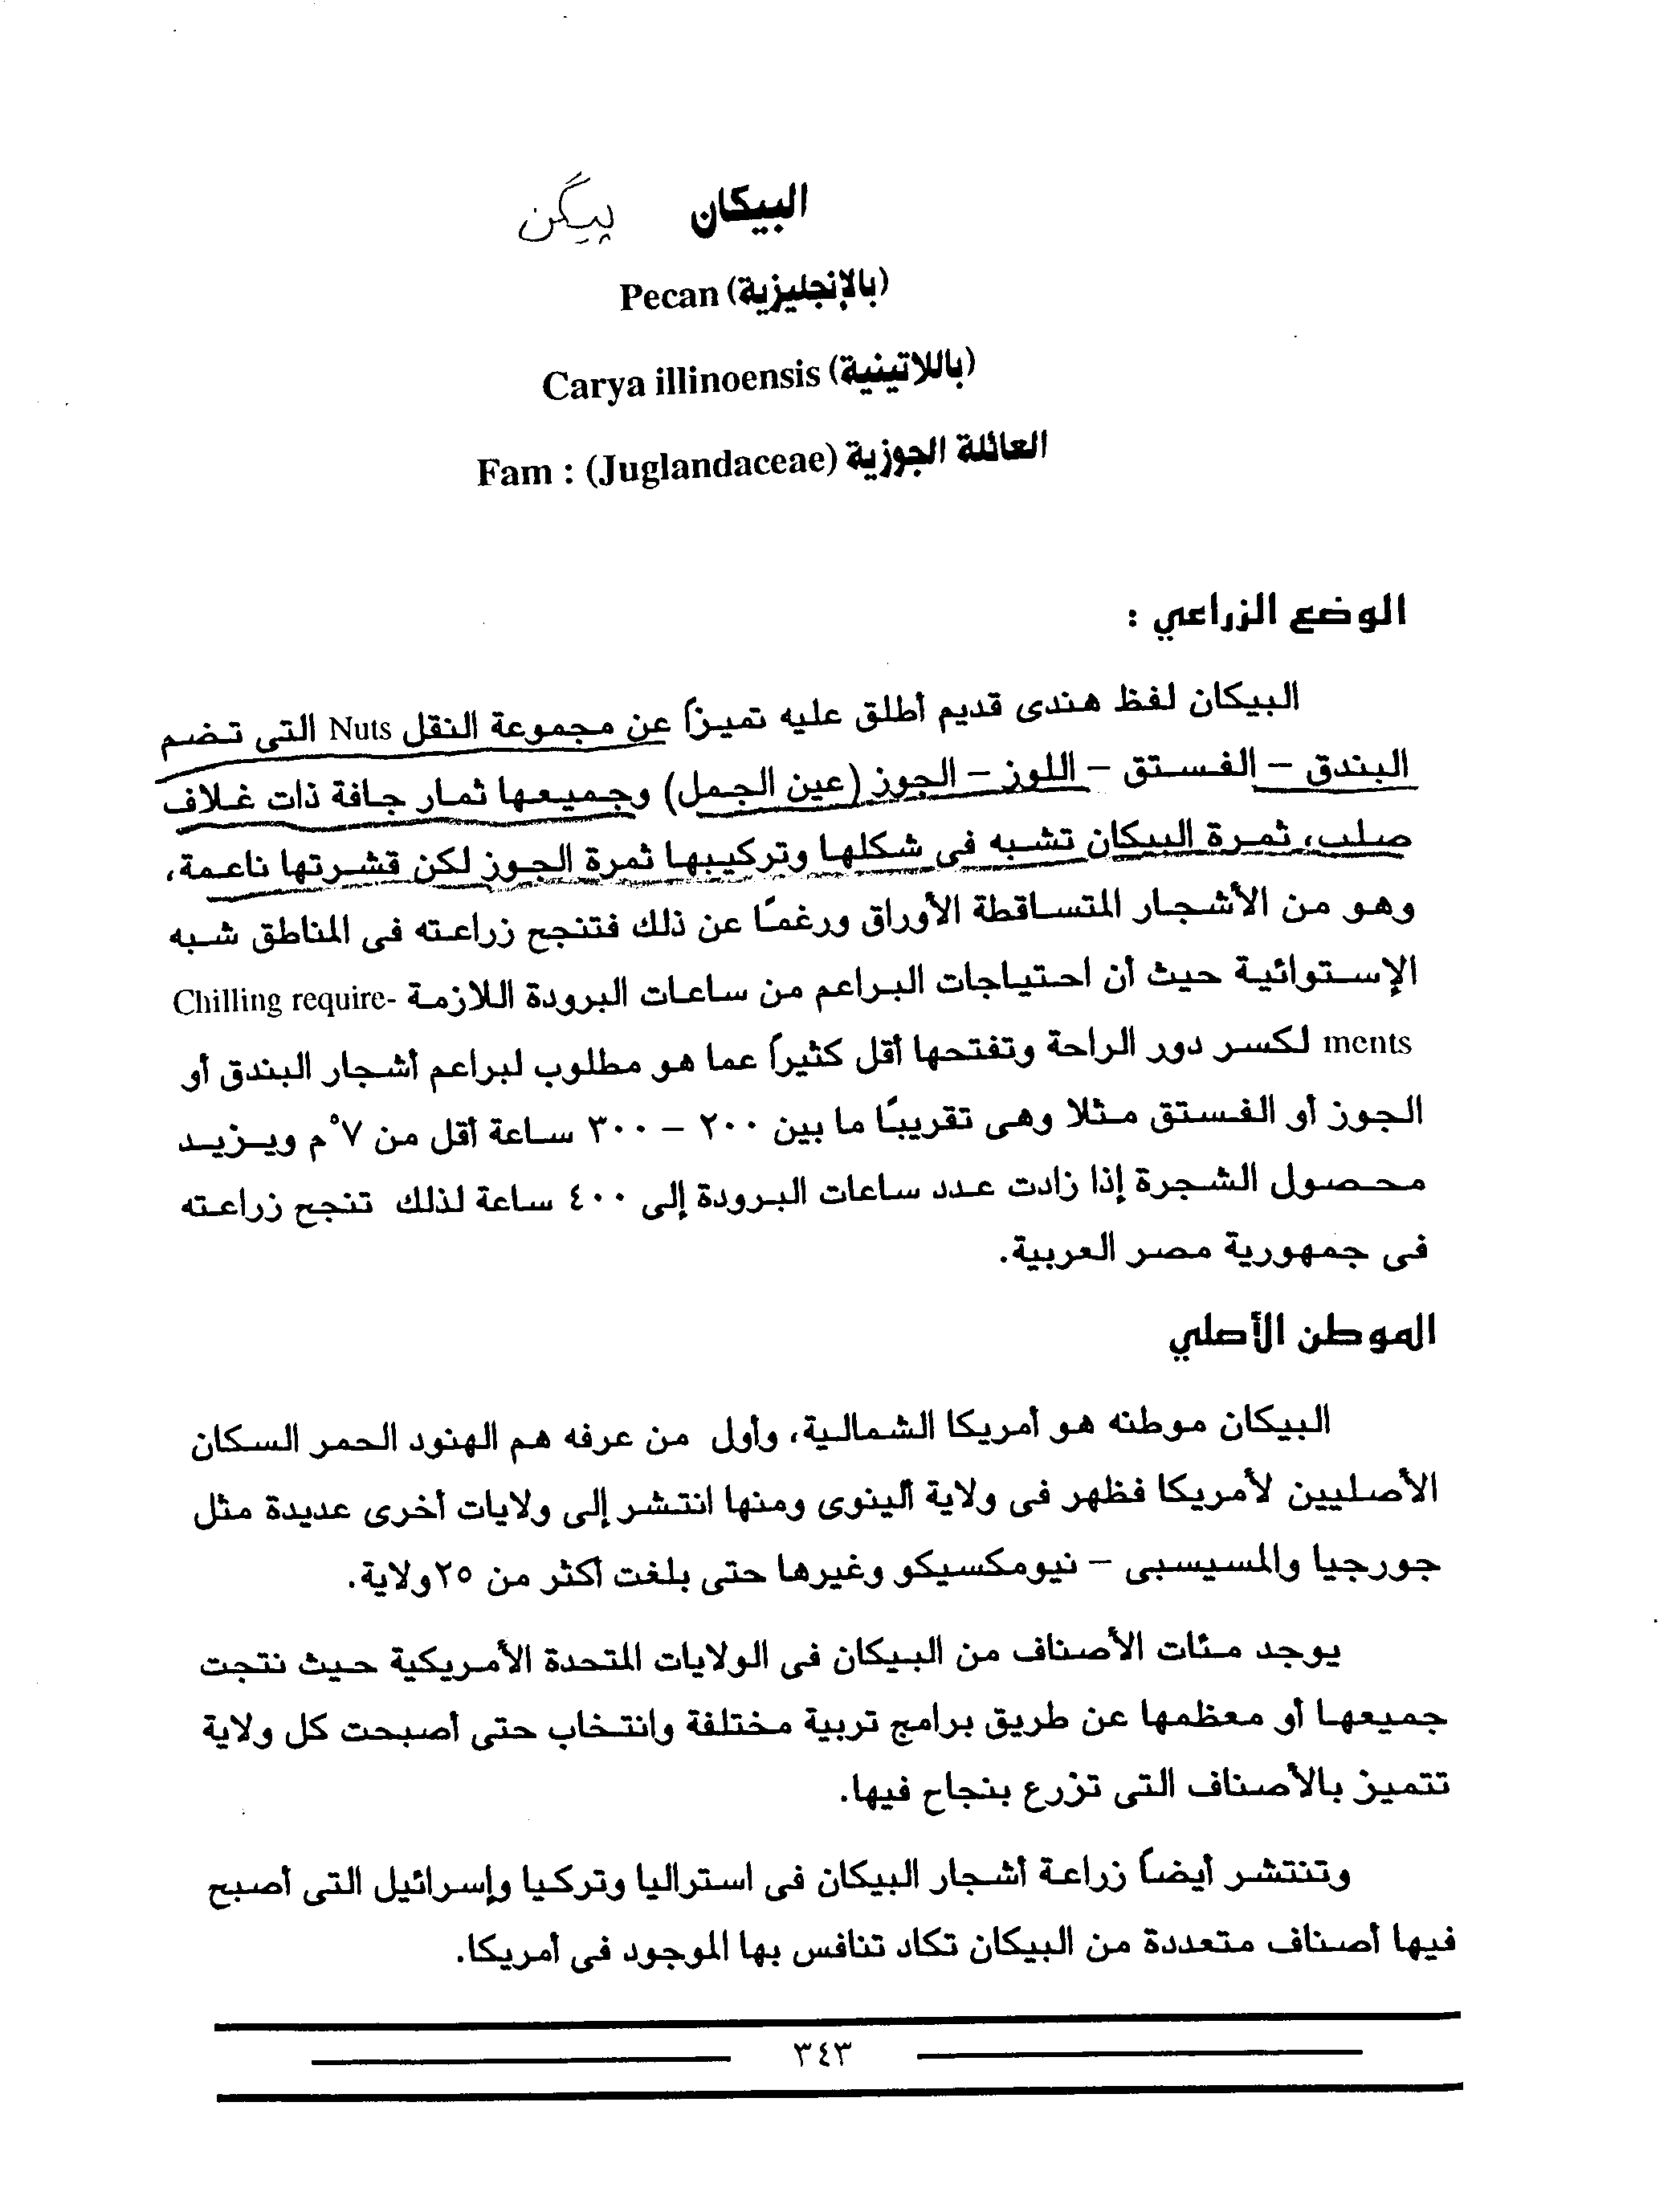 البيكان پيگن
(بالإنجليزية) Pecan
(باللاتينية) Carya illinoensis
العائلة الجوزية Fam : (Juglandaceae)
الوضع الزراعي :
البيكان لفظ هندى قديم أطلق عليه تميزاً عن مجموعة النقل Nuts التى تضم
البندق – الفستق – اللوز – الجوز (عين الجمل) وجميعها ثمار جافة ذات غلاف
صلب، ثمرة البيكان تشبه فى شكلها وتركيبها ثمرة الجوز لكن قشرتها ناعمة،
وهو من الأشجار المتساقطة الأوراق ورغمًا عن ذلك فتنجح زراعته فى المناطق شبه
الإستوائية حيث أن احتياجات البراعم من ساعات البرودة اللازمة Chilling require-
ments لكسر دور الراحة وتفتحها أقل كثيراً عما هو مطلوب لبراعم أشجار البندق أو
الجوز أو الفستق مثلا وهى تقريبًا ما بين ٢٠٠ – ٣٠٠ ساعة أقل من ٧°م ويزيد
محصول الشجرة إذا زادت عدد ساعات البرودة إلى ٤٠٠ ساعة لذلك تنجح زراعته
فى جمهورية مصر العربية.
الموطن الأصلي
البيكان موطنه هو أمريكا الشمالية، وأول من عرفه هم الهنود الحمر السكان
الأصليين لأمريكا فظهر فى ولاية ألينوى ومنها انتشر إلى ولايات أخرى عديدة مثل
جورجيا والمسيسبى – نيومكسيكو وغيرها حتى بلغت أكثر من ٢٥ولاية.
يوجد مئات الأصناف من البيكان فى الولايات المتحدة الأمريكية حيث نتجت
جميعها أو معظمها عن طريق برامج تربية مختلفة وانتخاب حتى أصبحت كل ولاية
تتميز بالأصناف التى تزرع بنجاح فيها.
وتنتشر أيضاً زراعة أشجار البيكان فى استراليا وتركيا وإسرائيل التى أصبح
فيها أصناف متعددة من البيكان تكاد تنافس بها الموجود فى أمريكا.
٣٤٣